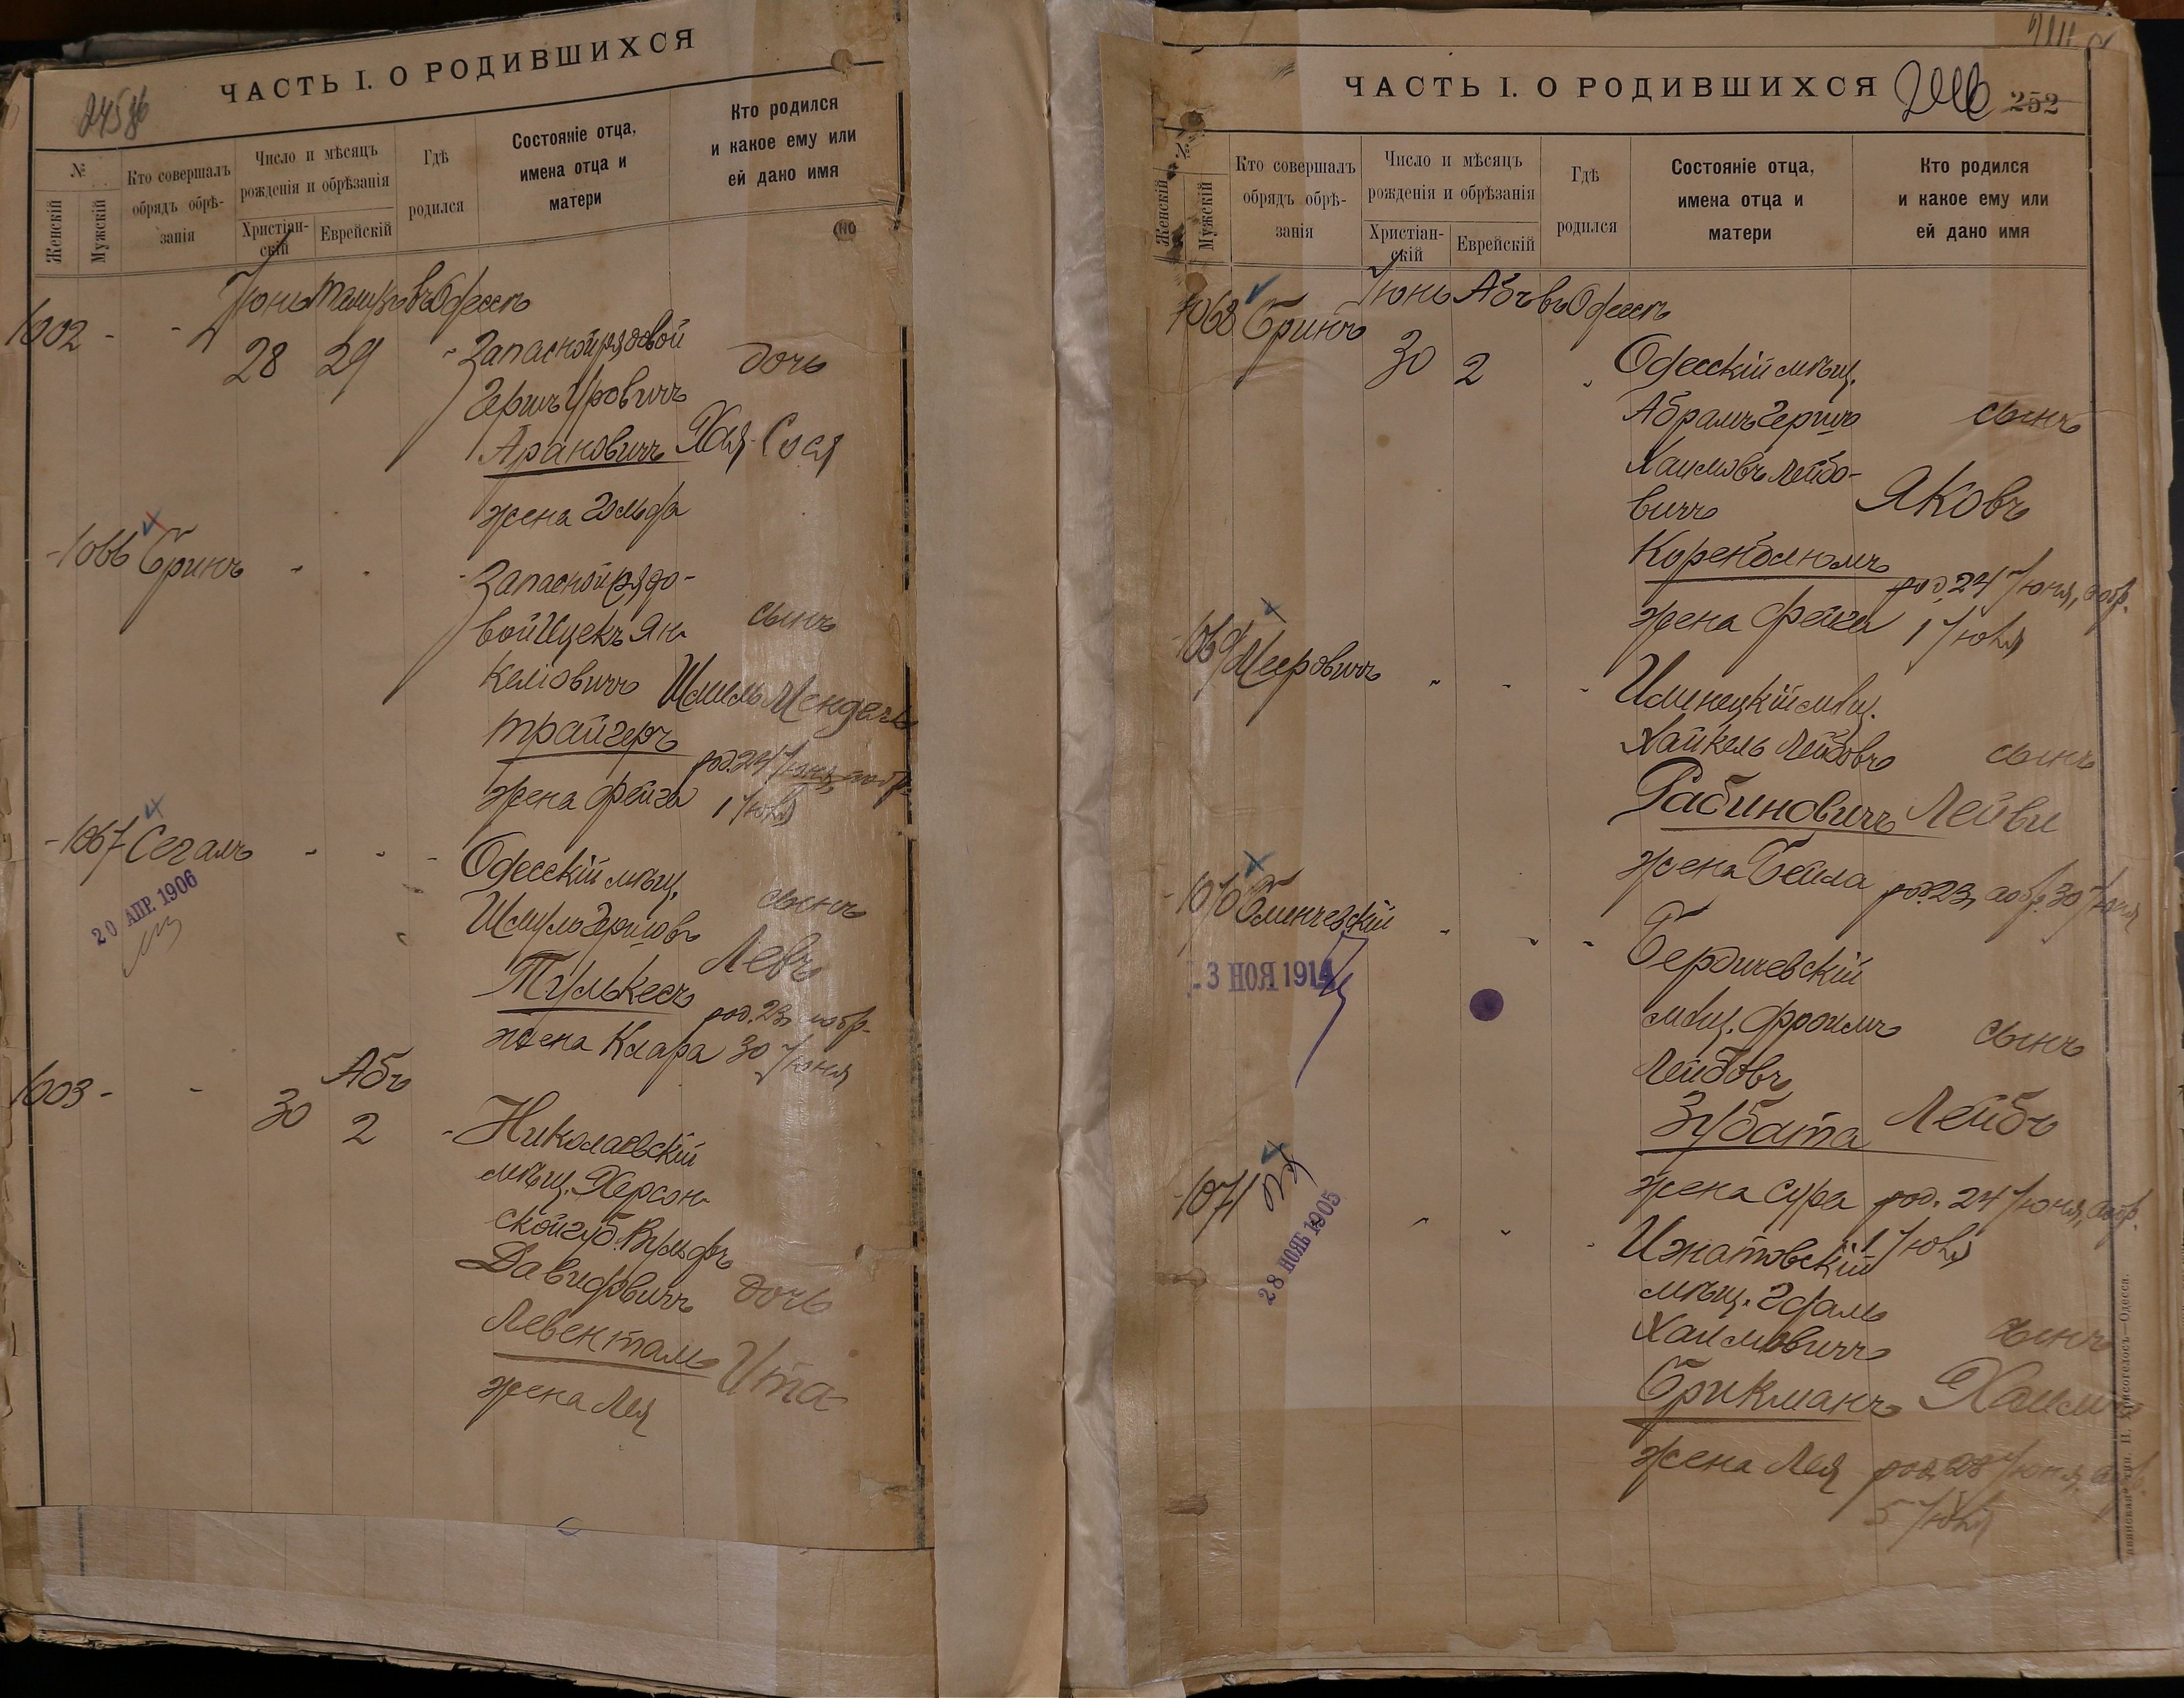 ЧАСТЬ I. О РОДИВШИХСЯ
№
Женскій
Мужскій
Кто совершалъ
обрядъ обрѣ-
занія
Число и мѣсяцъ
рожденія и обрѣзанія
Христіан-
скій
Еврейскій
Гдѣ
родился
Состояніе отца,
имена отца и
матери
Кто родился
и какое ему или
ей дано имя
Іюнь Тамузъ въ Одессѣ
1002 - - 28 29
Запасной рядовой
Гершъ Уровичъ
Арановичъ
жена Гольда
дочь
Хая-Сося
1066 Бринъ
Запасной рядо-
вой Ицекъ Ян-
келіовичъ
Трайгеръ
жена Фейга
сынъ
Шмиль Мендель
род. 24 Іюня, а обр.
1 Іюля
1067 Сегалъ
20 АПР. 1906
Одесскій мѣщ.
Шмуль Гершовъ
Тулькесъ
жена Клара
сынъ
Левъ
род. 23, а обр.
30 Іюня
Абъ
1003 - - 30 2
Николаевскій
мѣщ. Херсон-
ской губ. Вульфъ
Давидовичъ
Левенталь
жена Лея
дочь
Ита
ЧАСТЬ I. О РОДИВШИХСЯ
252
№
Женскій
Мужскій
Кто совершалъ
обрядъ обрѣ-
занія
Число и мѣсяцъ
рожденія и обрѣзанія
Христіан-
скій
Еврейскій
Гдѣ
родился
Состояніе отца,
имена отца и
матери
Кто родился
и какое ему или
ей дано имя
Іюнь Абъ въ Одессѣ
1068 Бринъ 30 2
Одесскій мѣщ.
Абрамъ Гершъ
Хаимовъ Лейбо-
вичъ
Коренблюмъ
жена Фейга
сынъ
Яковъ
род. 24 Іюня, а обр.
1 Іюля
1069 Мееровичъ
Илинецкій мѣщ.
Хайкель Лейбовъ
Рабиновичъ
жена Бейла
сынъ
Лейви
род. 23, а обр. 30 Іюня
1070
3 НОЯ 1914
Бердичевскій
мѣщ. Фроимъ
Лейбовъ
Зубата
жена Сура
сынъ
Лейбъ
род. 24 Іюня, а обр.
1 Іюля
1071
28 НОЯБ 1905
мѣщ.
Хаимовичъ
Брикманъ
жена Лея
сынъ
Хаимъ
род. 28 Іюня, а обр.
5 Іюля